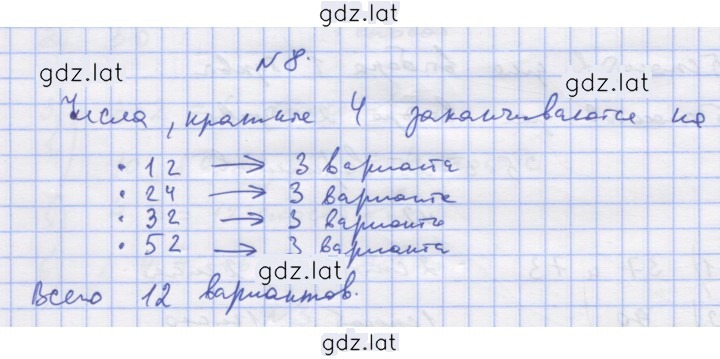 gdz.lat
№ 8.
gdz.lat
gdz.lat
Числа, кратные 4 заканчиваются на
• 12 → 3 варианта
• 24 → 3 варианта
• 32 → 3 варианта
• 52 → 3 варианта
gdz.lat
Всего 12 вариантов.
gdz.lat